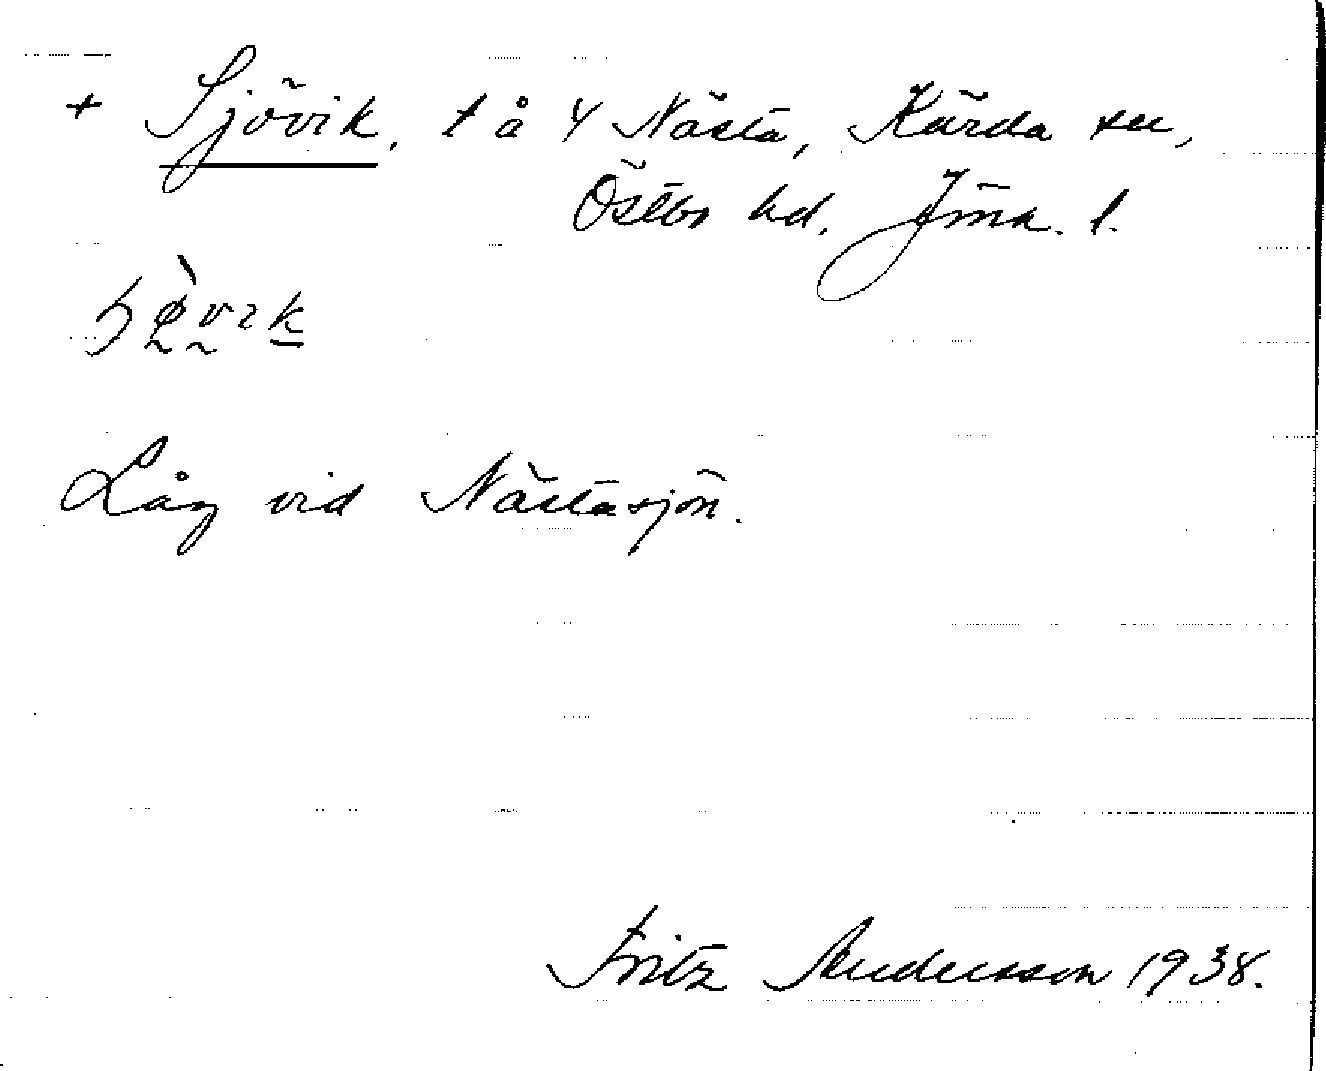 + Sjövik, t å 4 Nästa, Kärda sn,
Östbo hd. Jönk. l.
Låg vid Nästasjön.
Fritz Andersson 1938.